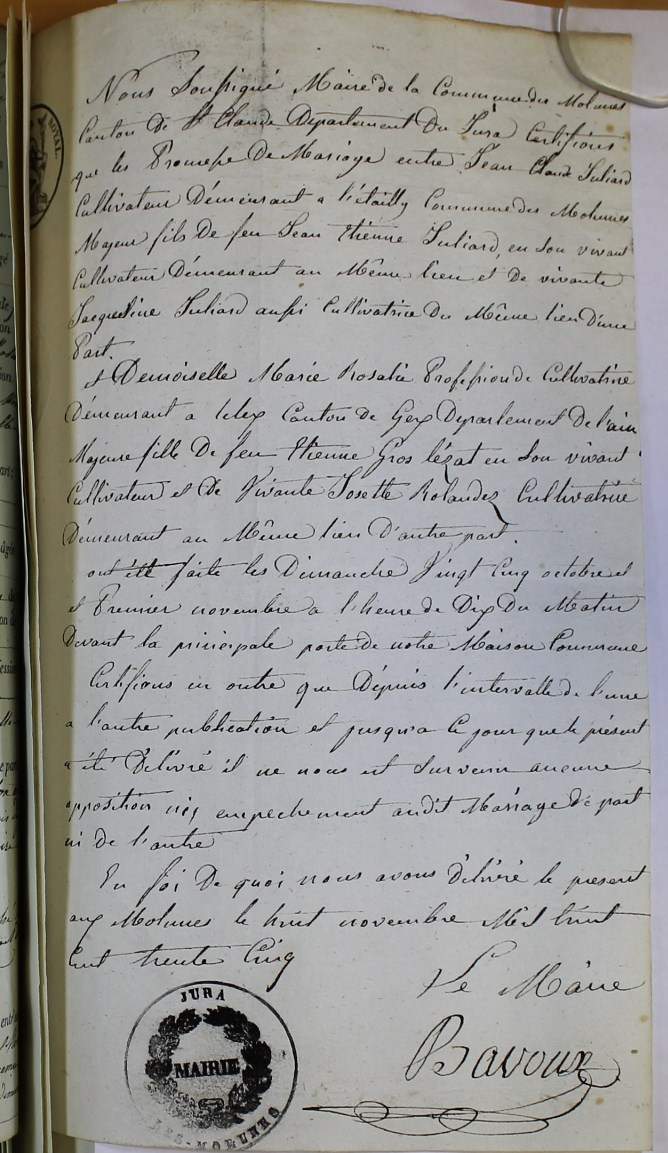 Nous Soussigné Maire de la Commune des Molunes
Canton De St Claude Departement Du Jura Certifions
que les Promesse De Mariage entre Jean Claude Juliard
Cultivateur Démeurant a l'étailly Commune des Molunes
Majeur fils De feu Jean Etiénne Juliard, en Son vivant
Cultivateur Démeurant au Même lieu et De vivante
Jacqueline Juliard aussi Cultivatrice Du Même lieu D'une
Part.
et Demoiselle Marie Rosalie Profession de Cultivatrice
Démeurant a lelex Canton de Gex Departement De l'ain
Majeure fille De feu Etienne Gros lézat en Son vivant
Cultivateur et De Vivante Josette Rolandez Cultivatrice
Démeurant au Même lieu D'autre part.
ont été faite les Dimanche Vingt Cinq octobre et
et Premier novembre a l'heure de Dix Du Matin
Devant la principale porte de notre Maison Commune
Certifions en outre que Dépuis l'intervalle de l'une
a l'autre publication et jusqu'a le jour que le présent
a été Délivré il ne nous est Survenu aucune
opposition ni empechement audit Mariage De part
ni de l'autre
En foi De quoi nous avons Délivré le present
aux Molunes le huit novembre Mil huit
Cent trente Cinq
Le Maire
Bavoux
JURA
MAIRIE
LES-MOLUNES
ROYAL